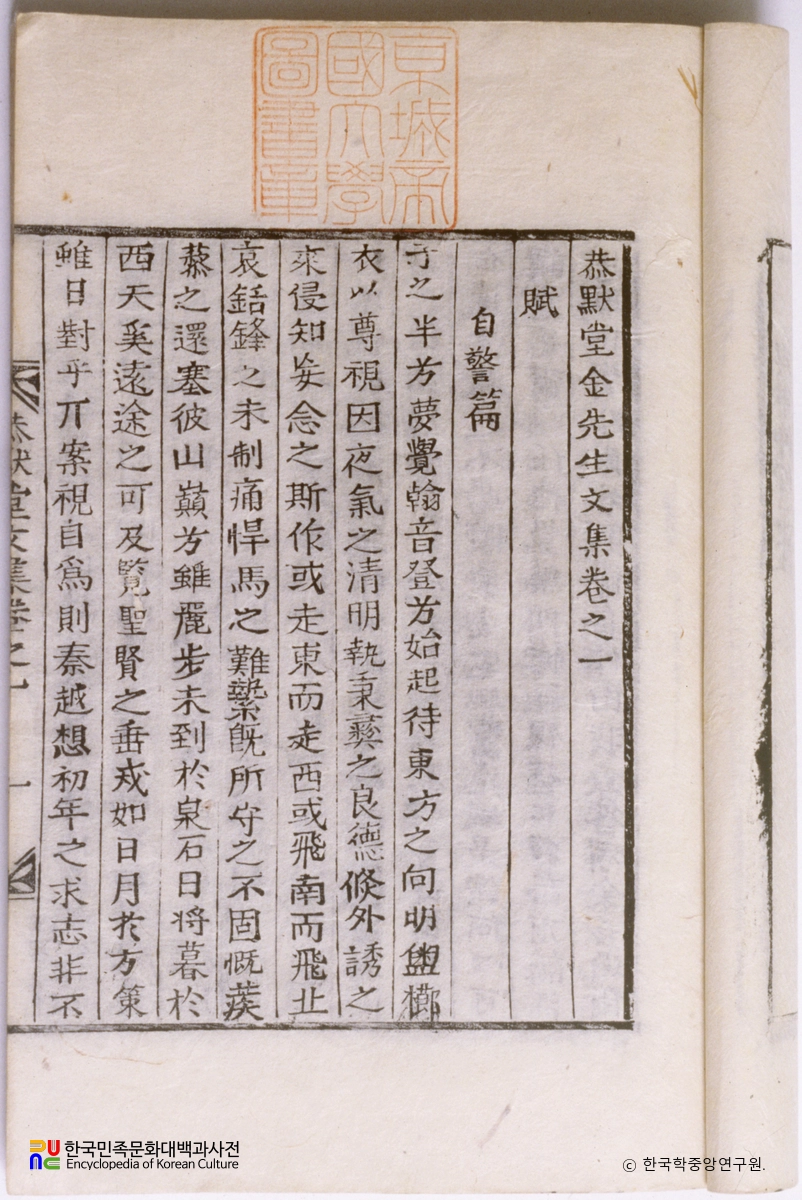 京城帝
國大學
圖書章
恭默堂金先生文集卷之一
賦
自警篇
子之半兮夢覺翰音登兮始起待東方之向明盥櫛
衣以尊視因夜氣之清明執秉彝之良德倐外誘之
來侵知妄念之斯作或走東而走西或飛南而飛北
哀銛鋒之未制痛悍馬之難縶旣所守之不固慨蒺
藜之還塞彼山巔兮雖麗步未到於泉石日將暮於
西天奚遠途之可及覽聖賢之垂戒如日月於方策
雖日對乎丌案視自爲則秦越想初年之求志非不
恭默堂文集卷之一 一
한국민족문화대백과사전
Encyclopedia of Korean Culture
© 한국학중앙연구원.